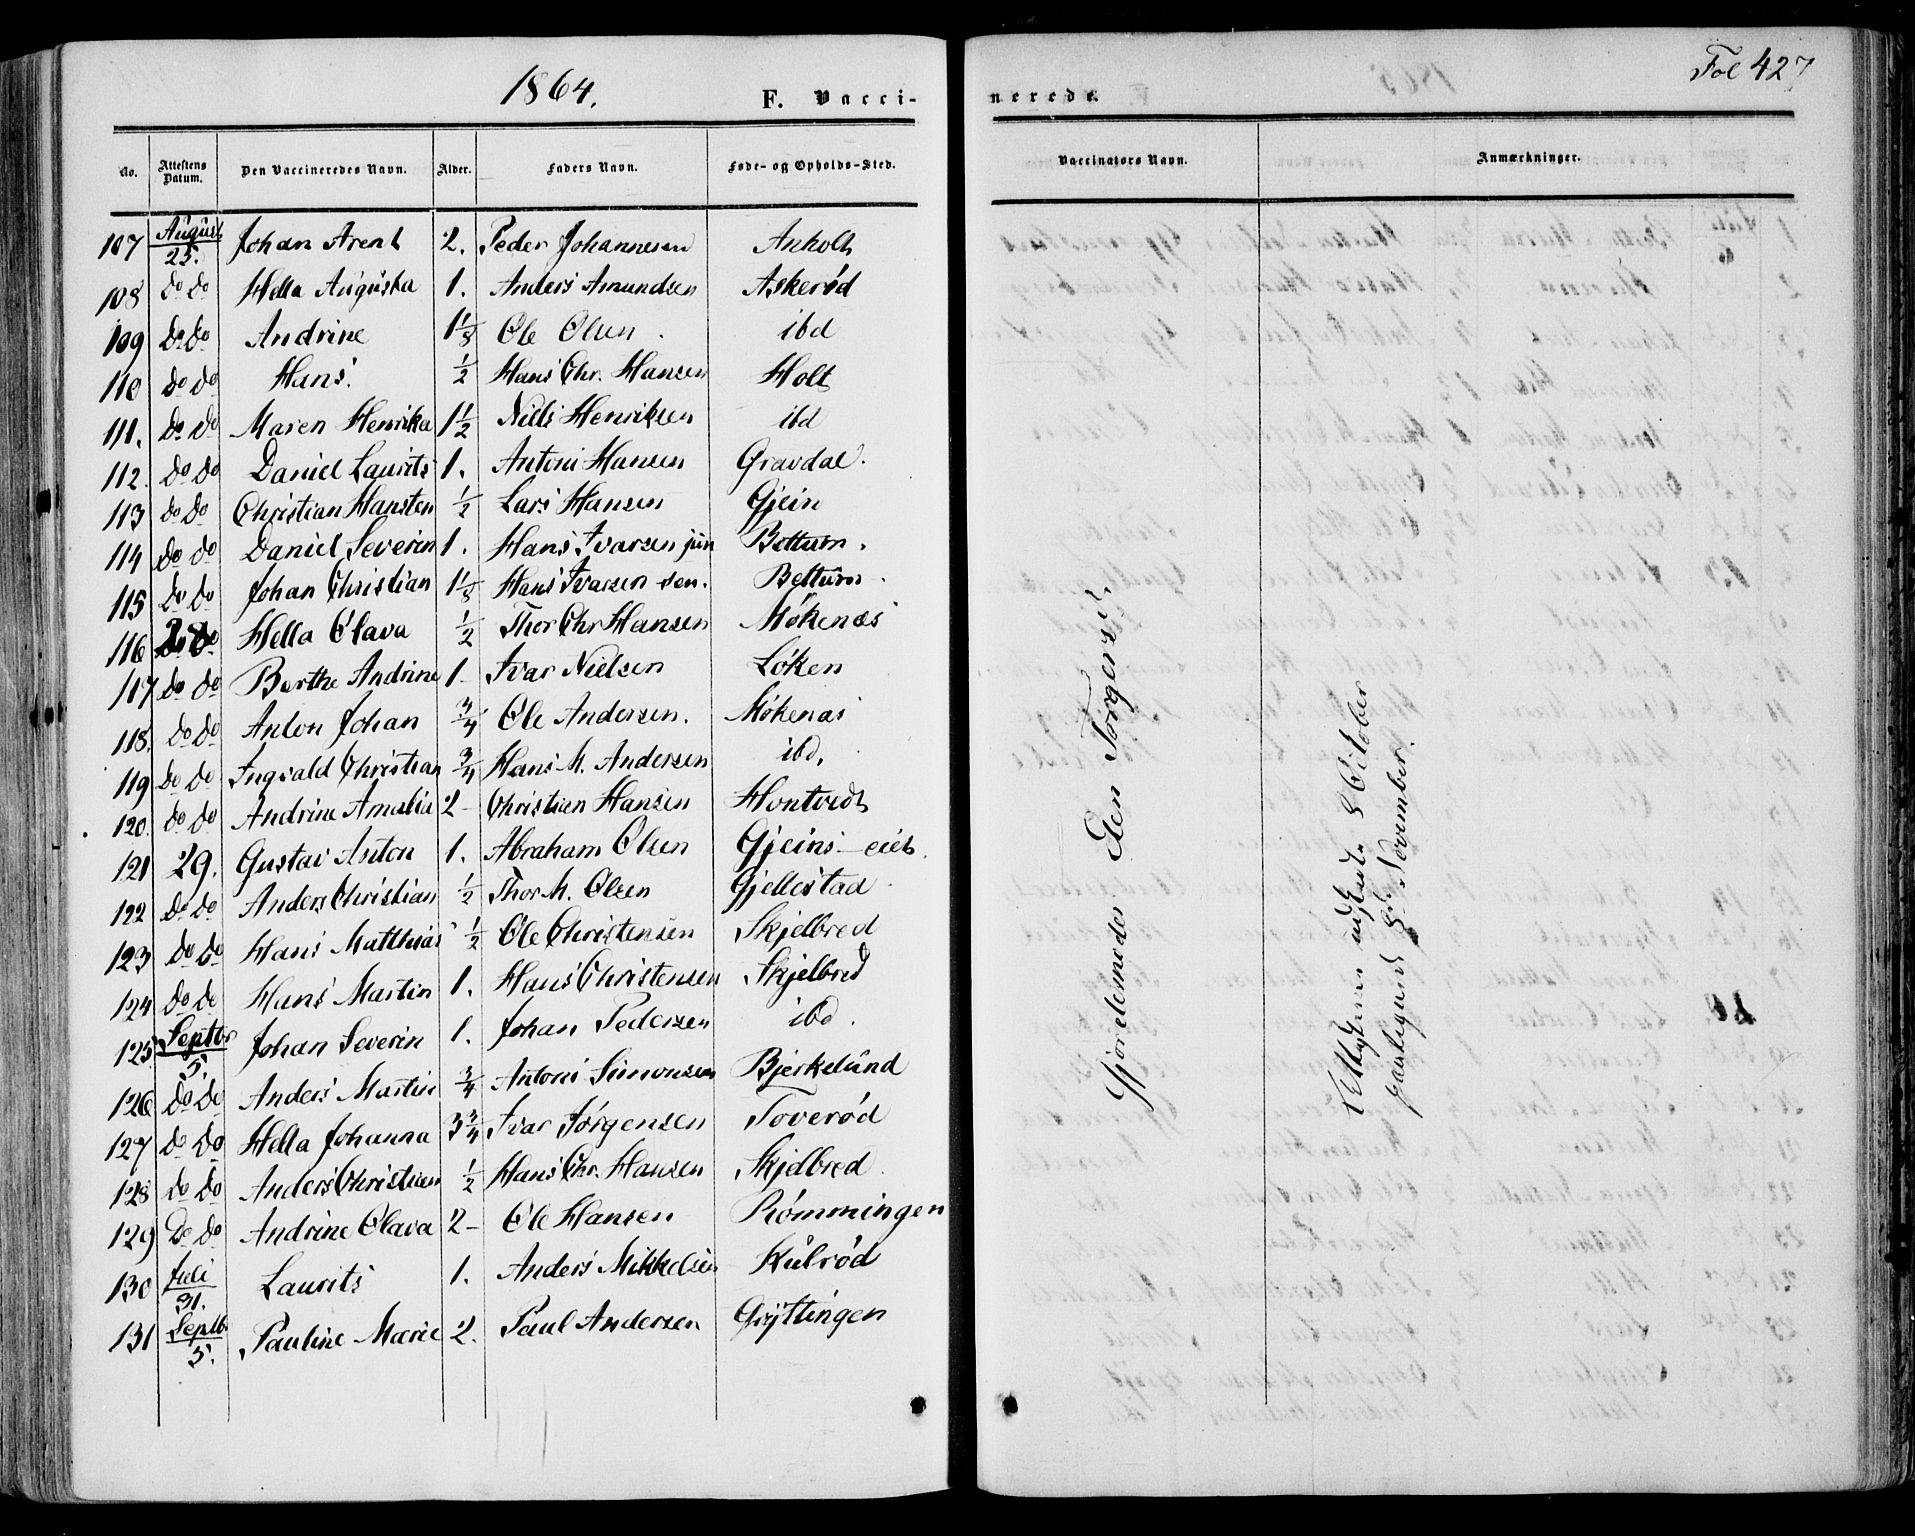 1864.
F. Vacci-
nerede.
Fol 427
No. Attestens Datum. Den Vaccineredes Navn. Alder. Faders Navn. Føde- og Opholds-Sted. Vaccinateurs Navn. Anmærkninger.
107 August 25. Johan Arent 2. Peder Johannesen Anholt
108 do do Hella Augusta 1. Anders Amundsen Askerød
109 do do Andrine Ole Olsen ibd
110 do do Hans. 1/2 Hans Chr. Hansen Holt
111. do do Maren Henrika 1 1/2 Niels Henriksen ibd
112. do do Daniel Laurits 1. Antoni Hansen Gravdal.
113 do do Christian Hansten 1/2 Lars Hansen Gjein
114 do do Daniel Severin 1. Hans Ivarsen jun Bettum.
115 do do Johan Christian Hans Ivarsen sen. Bettum.
116 Hella Olava 1/2 Thor Chr Hansen Møkenæs
117 do do Berthe Andrine 1- Ivar Nielsen Løken
118. do do Anton Johan 3/4 Ole Andersen. Møkenæs
119 do do Ingvald Christian 3/4 Hans M. Andersen ibd.
120. do do Andrine Amalia 2- Christian Hansen Hontvedt
121 29. Gustav Anton 1. Abraham Olsen Gjeins-eiet.
122 do do Anders Christian 1/2 Thor M. Olsen Gjellestad
123 do do Hans Matthias 1/2 Ole Christensen Skjelbred
124 do do Hans Martin 1. Hans Christensen Skjelbred
125 Septbr 5. Johan Severin 1. Johan Pedersen ibd.
126 do do Anders Martin 3/4 Antoni Simonsen Bjerkelund
127 do do Hella Johanna 3 3/4 Ivar Jørgensen Toverød
128 do do Anders Christian 1/2 Hans Chr. Hansen Skjelbred
129 do do Andrine Olava 2- Ole Hansen Rømmingen
130 Juli 31. Laurits 1. Anders Mikkelsen Kulrød
131 Septbr 5. Pauline Marie 2. Paul Andersen Gryttingen
Gjordemoder Elen Torgersd.
Attesterne udstedt 8 October
November.